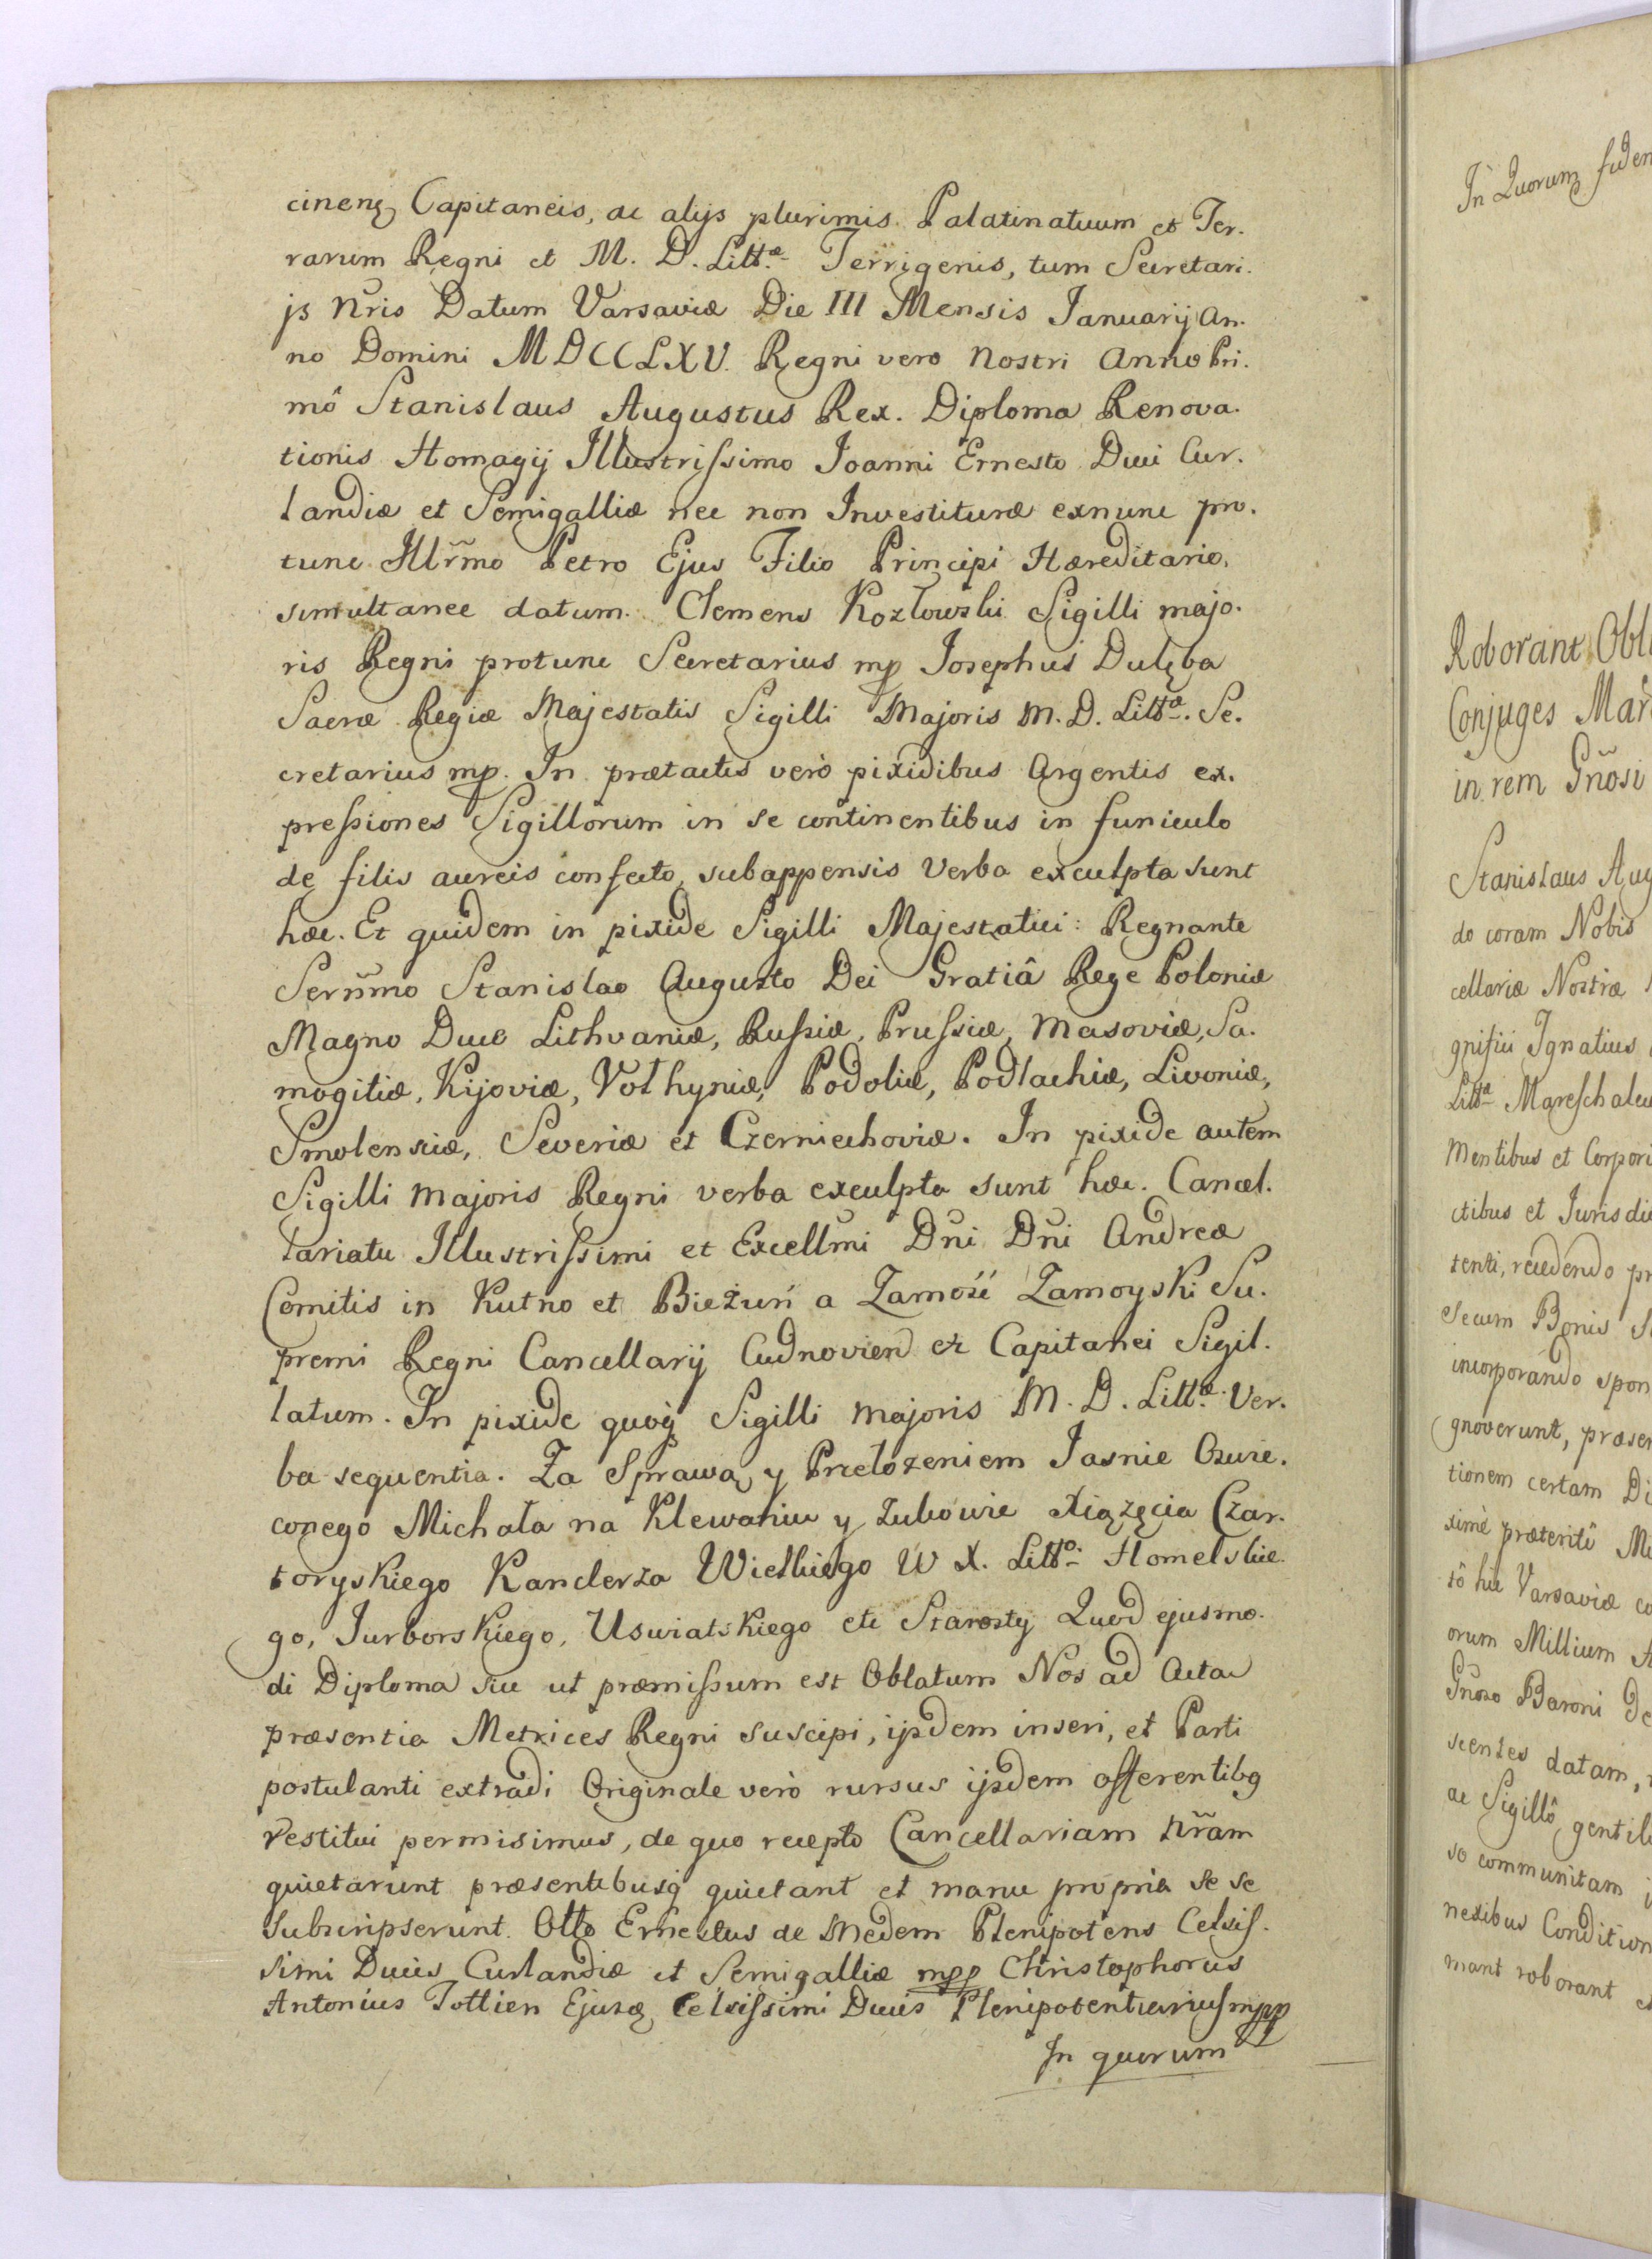 cineng Capitaneis, ac alijs plurimis Palatinatuum et Ter.
rarum Regni et M. D. Littæ Terrigenis, tum Secretari.
js Nris Datum Varsaviæ Die III Mensis Januarij An.
no Domini MDCCLXV. Regni vero Nostri Anno Pri.
mô Stanislaus Augustus Rex. Diploma Renova.
tionis Homagij Illustrissimo Joanni Ernesto Duci Cur.
landiæ et Semigalliæ nec non Investituræ exnunc pro.
tunc Illrmo Petro Ejus Filio Principi Hæreditario,
simultanee datum. Clemens Kozłowski Sigilli majo.
ris Regni protunc Secretarius mp Josephus Dulęba
Sacræ Regiæ Majestatis Sigilli Majoris M. D. Littæ. Se.
cretarius mp. In prætactis verò pixidibus Argentis ex.
pressiones Sigillorum in se continentibus in funiculo
de filis aureis confecto, subappensis Verba exculpta sunt
hæc. Et quidem in pixide Sigilli Majestatici: Regnante
Sernmo Stanislao Augusto Dei Gratiâ Rege Poloniæ
Magno Duce Lithvaniæ, Russiæ, Prussiæ, Masoviæ, Sa.
mogitiæ, Kijoviæ, Volhyniæ, Podoliæ, Podlachiæ, Livoniæ,
Smolensciæ, Severiæ et Czerniechoviæ. In pixide autem
Sigilli majoris Regni verba exculpta sunt hæc. Cancel.
lariatu Illustrissimi et Excellmi Dni Dni Andreæ
Comitis in Kutno et Bieżuń a Zamość Zamoyski Su.
premi Regni Cancellarij Cudnovien et Capitanei Sigil.
latum. In pixide quoq Sigilli majoris M. D. Littæ. Ver.
ba sequentia. Za Sprawą y Przełożeniem Jasnie Oswie.
conego Michała na Klewaniu y Żukowie Xiążęcia Czar.
toryskiego Kanclerza Wielkiego W X. Litto Homelskie.
go, Jurborskiego, Uswiatskiego etc Starosty Quod ejusmo.
di Diploma sic ut præmissum est Oblatum Nos ad Acta
præsentia Metrices Regni suscipi, ijsdem inseri, et Parti
postulanti extradi Originale verò rursus ijsdem offerentibg
restitui permisimus, de quo recepto Cancellariam Nram
quietarunt præsentibusq quietant et manu propria se se
subscripserunt. Otto Ernestus de Medem Plenipotens Celsis.
simi Ducis Curlandiæ et Semigalliæ mpp Christophorus
Antonius Tottien Ejusdę Celsissimi Ducis Plenipotentiarius mpp
In quorum
In Quorum fidem
Roborant Obl
Conjuges Mar
in rem Gnosi
Stanislaus Aug
do coram Nobis
cellariæ Nostræ
gnifici Ignatius
Littæ Mareschalcu
Mentibus et Corpori
ctibus et Jurisdi
tenti, recedendo pr
secum Bonis S
incorporando spon
gnoverunt, præsen
tionem certam Di
ximè præteritô M
tô hic Varsaviæ co
orum Millium
Gnoso Baroni de
scentes datam,
ac Sigillô gentil
so communitam
nexibus Condition
mant roborant